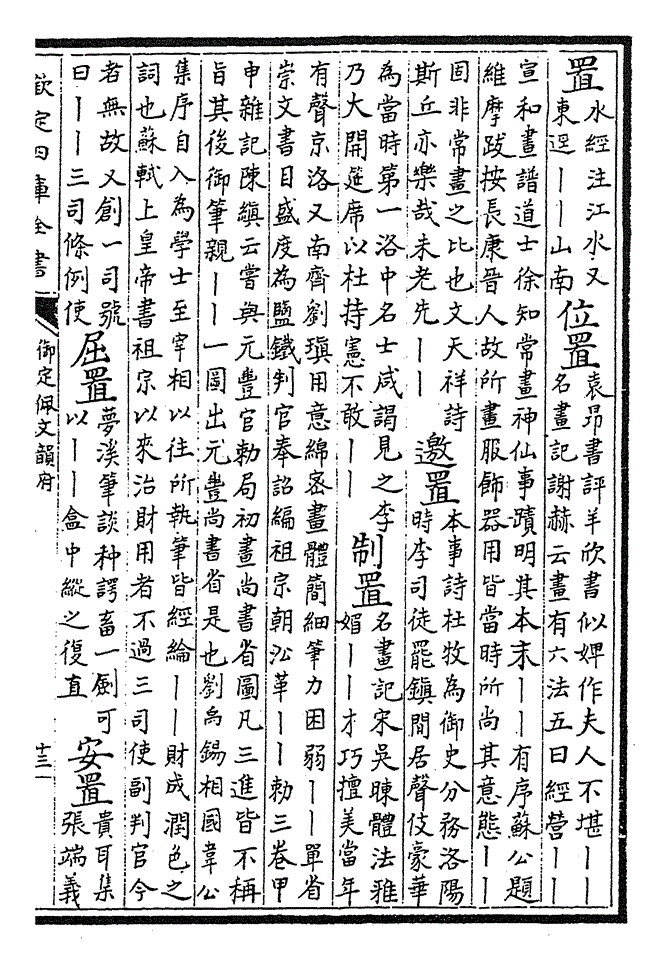 置
水經注江水又
東逕丨丨山南
位置
袁昂書評羊欣書似婢作夫人不堪丨丨
名畫記謝赫云畫有六法五曰經營丨丨
宣和畫譜道士徐知常畫神仙事蹟明其本末丨丨有序蘇公題
維摩跋按長康晉人故所畫服飾器用皆當時所尚其意態丨丨
固非常畫之比也文天祥詩
斯丘亦樂哉未老先丨丨
邀置
本事詩杜牧為御史分務洛陽
時李司徒罷鎮閒居聲伎豪華
為當時第一洛中名士咸謁見之李
乃大開筵席以杜持憲不敢丨丨
制置
名畫記宋吳暕體法雅
媚丨丨才巧擅美當年
有聲京洛又南齊劉瑱用意綿密畫體簡細筆力困弱丨丨單省
崇文書目盛度為鹽鐵判官奉詔編祖宗朝沿革丨丨勅三卷甲
申雜記陳縝云嘗與元豐官勅局初畫尚書省圖凡三進皆不稱
旨其後御筆親丨丨一圖出元豐尚書省是也劉禹錫相國韋公
集序自入為學士至宰相以往所執筆皆經綸丨丨財成潤色之
詞也蘇軾上皇帝書祖宗以來治財用者不過三司使副判官今
者無故又創一司號
曰丨丨三司條例使
屈置
夢溪筆談种諤畜一劍可
以丨丨盒中縱之復直
安置
貴耳集
張端義
欽定四庫全書
御定佩文韻府
十三